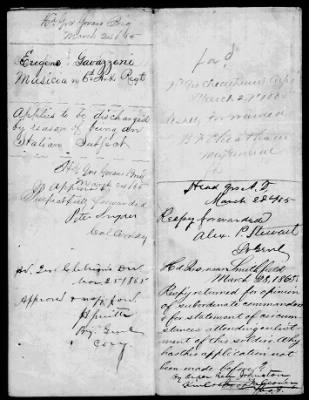 Hd Qrs Govans Brig
March 24/65
Eugene Gavazzone
Musician 6th Ark Regt
Applies to be discharged
by reason of being an
Italian Subject
Hd Qrs Govans Brig
March 24/65
Approved
Respectfully forwarded
Peter
Col Comdg
Hd Qrs Cleburnes Div
Mar 25th 1865
Approved & resp. forw.
Smith
Brig Genl
Comg
for'd
Hd Qrs Cheatham's Corps
March 27 1865
Resply forwarded
B F Cheatham
Maj Genl
Head Qrs A. T.
March 28 65
Respy forwarded
Alex. P. Stewart
Lt Genl
Hd Qrs near Smithfield
March 28, 1865.
Respy returned for opinion
of subordinate commanders
& for statement of circum-
stances attending enlist-
ment of this soldier. Why
has this application not
been made before?
By order Genl Johnston